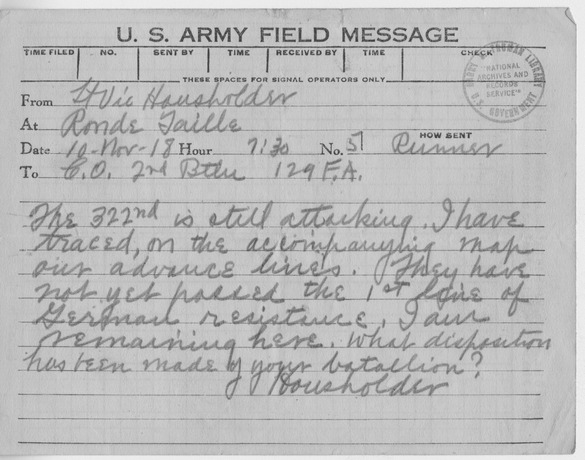 U. S. ARMY FIELD MESSAGE
TIME FILED NO. SENT BY TIME RECEIVED BY TIME CHECK
THESE SPACES FOR SIGNAL OPERATORS ONLY
From Lt Vic Housholder
At Ronde Taille
HOW SENT
Date 10-Nov-18 Hour 7:30 No. 5 Runner
To C.O. 2nd Btln 129 F.A.
The 322nd is still attacking. I have
traced, on the accompanying map
our advance lines. They have
not yet passed the 1st line of
German resistance. I am
remaining here. What disposition
has been made of your batallion?
Housholder
HARRY S. TRUMAN LIBRARY
"NATIONAL
ARCHIVES AND
RECORDS
SERVICE"
U.S. GOVERNMENT